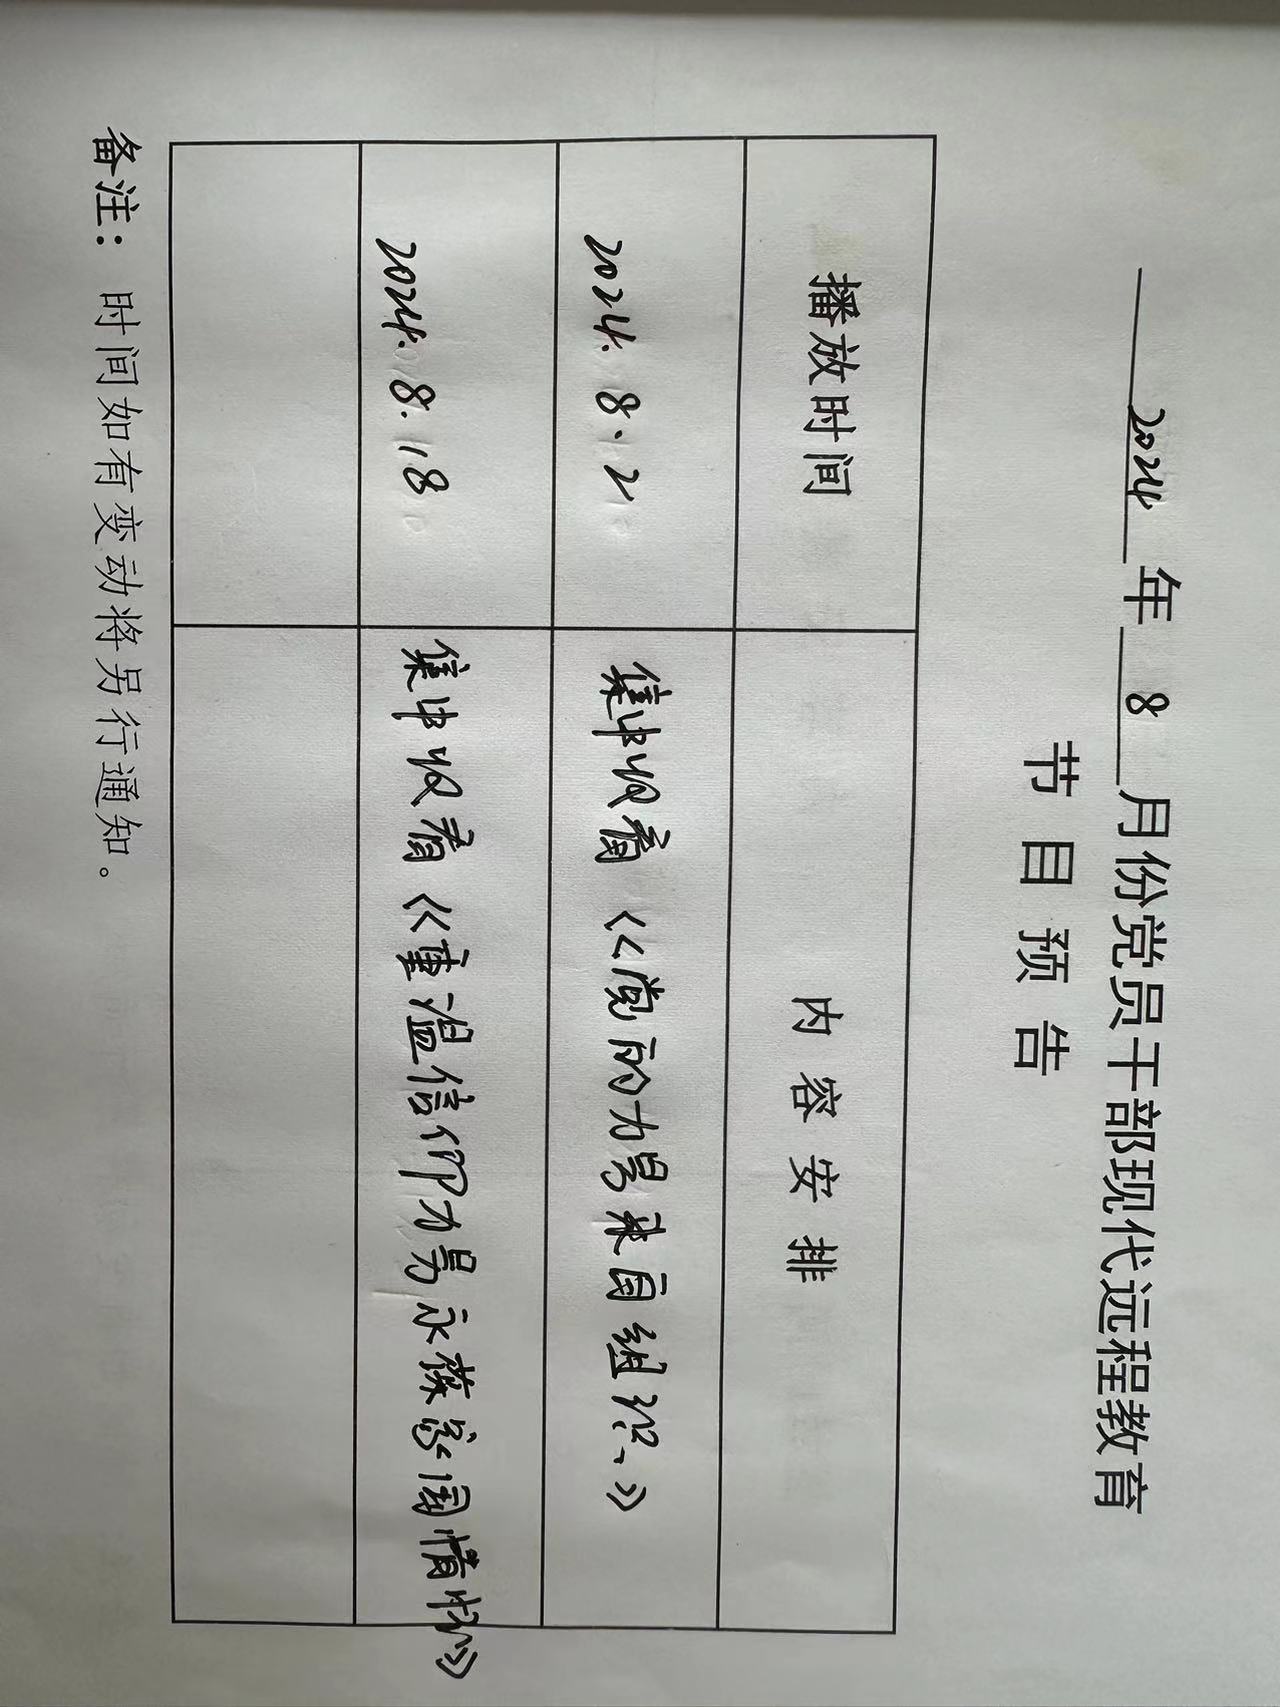 2024年8月份党员干部现代远程教育
节目预告
播放时间 内容安排
2024.8.2 集中收看《党的力量来自组织》
2024.8.18 集中收看《重温信仰力量永葆家国情怀》
备注：时间如有变动将另行通知。